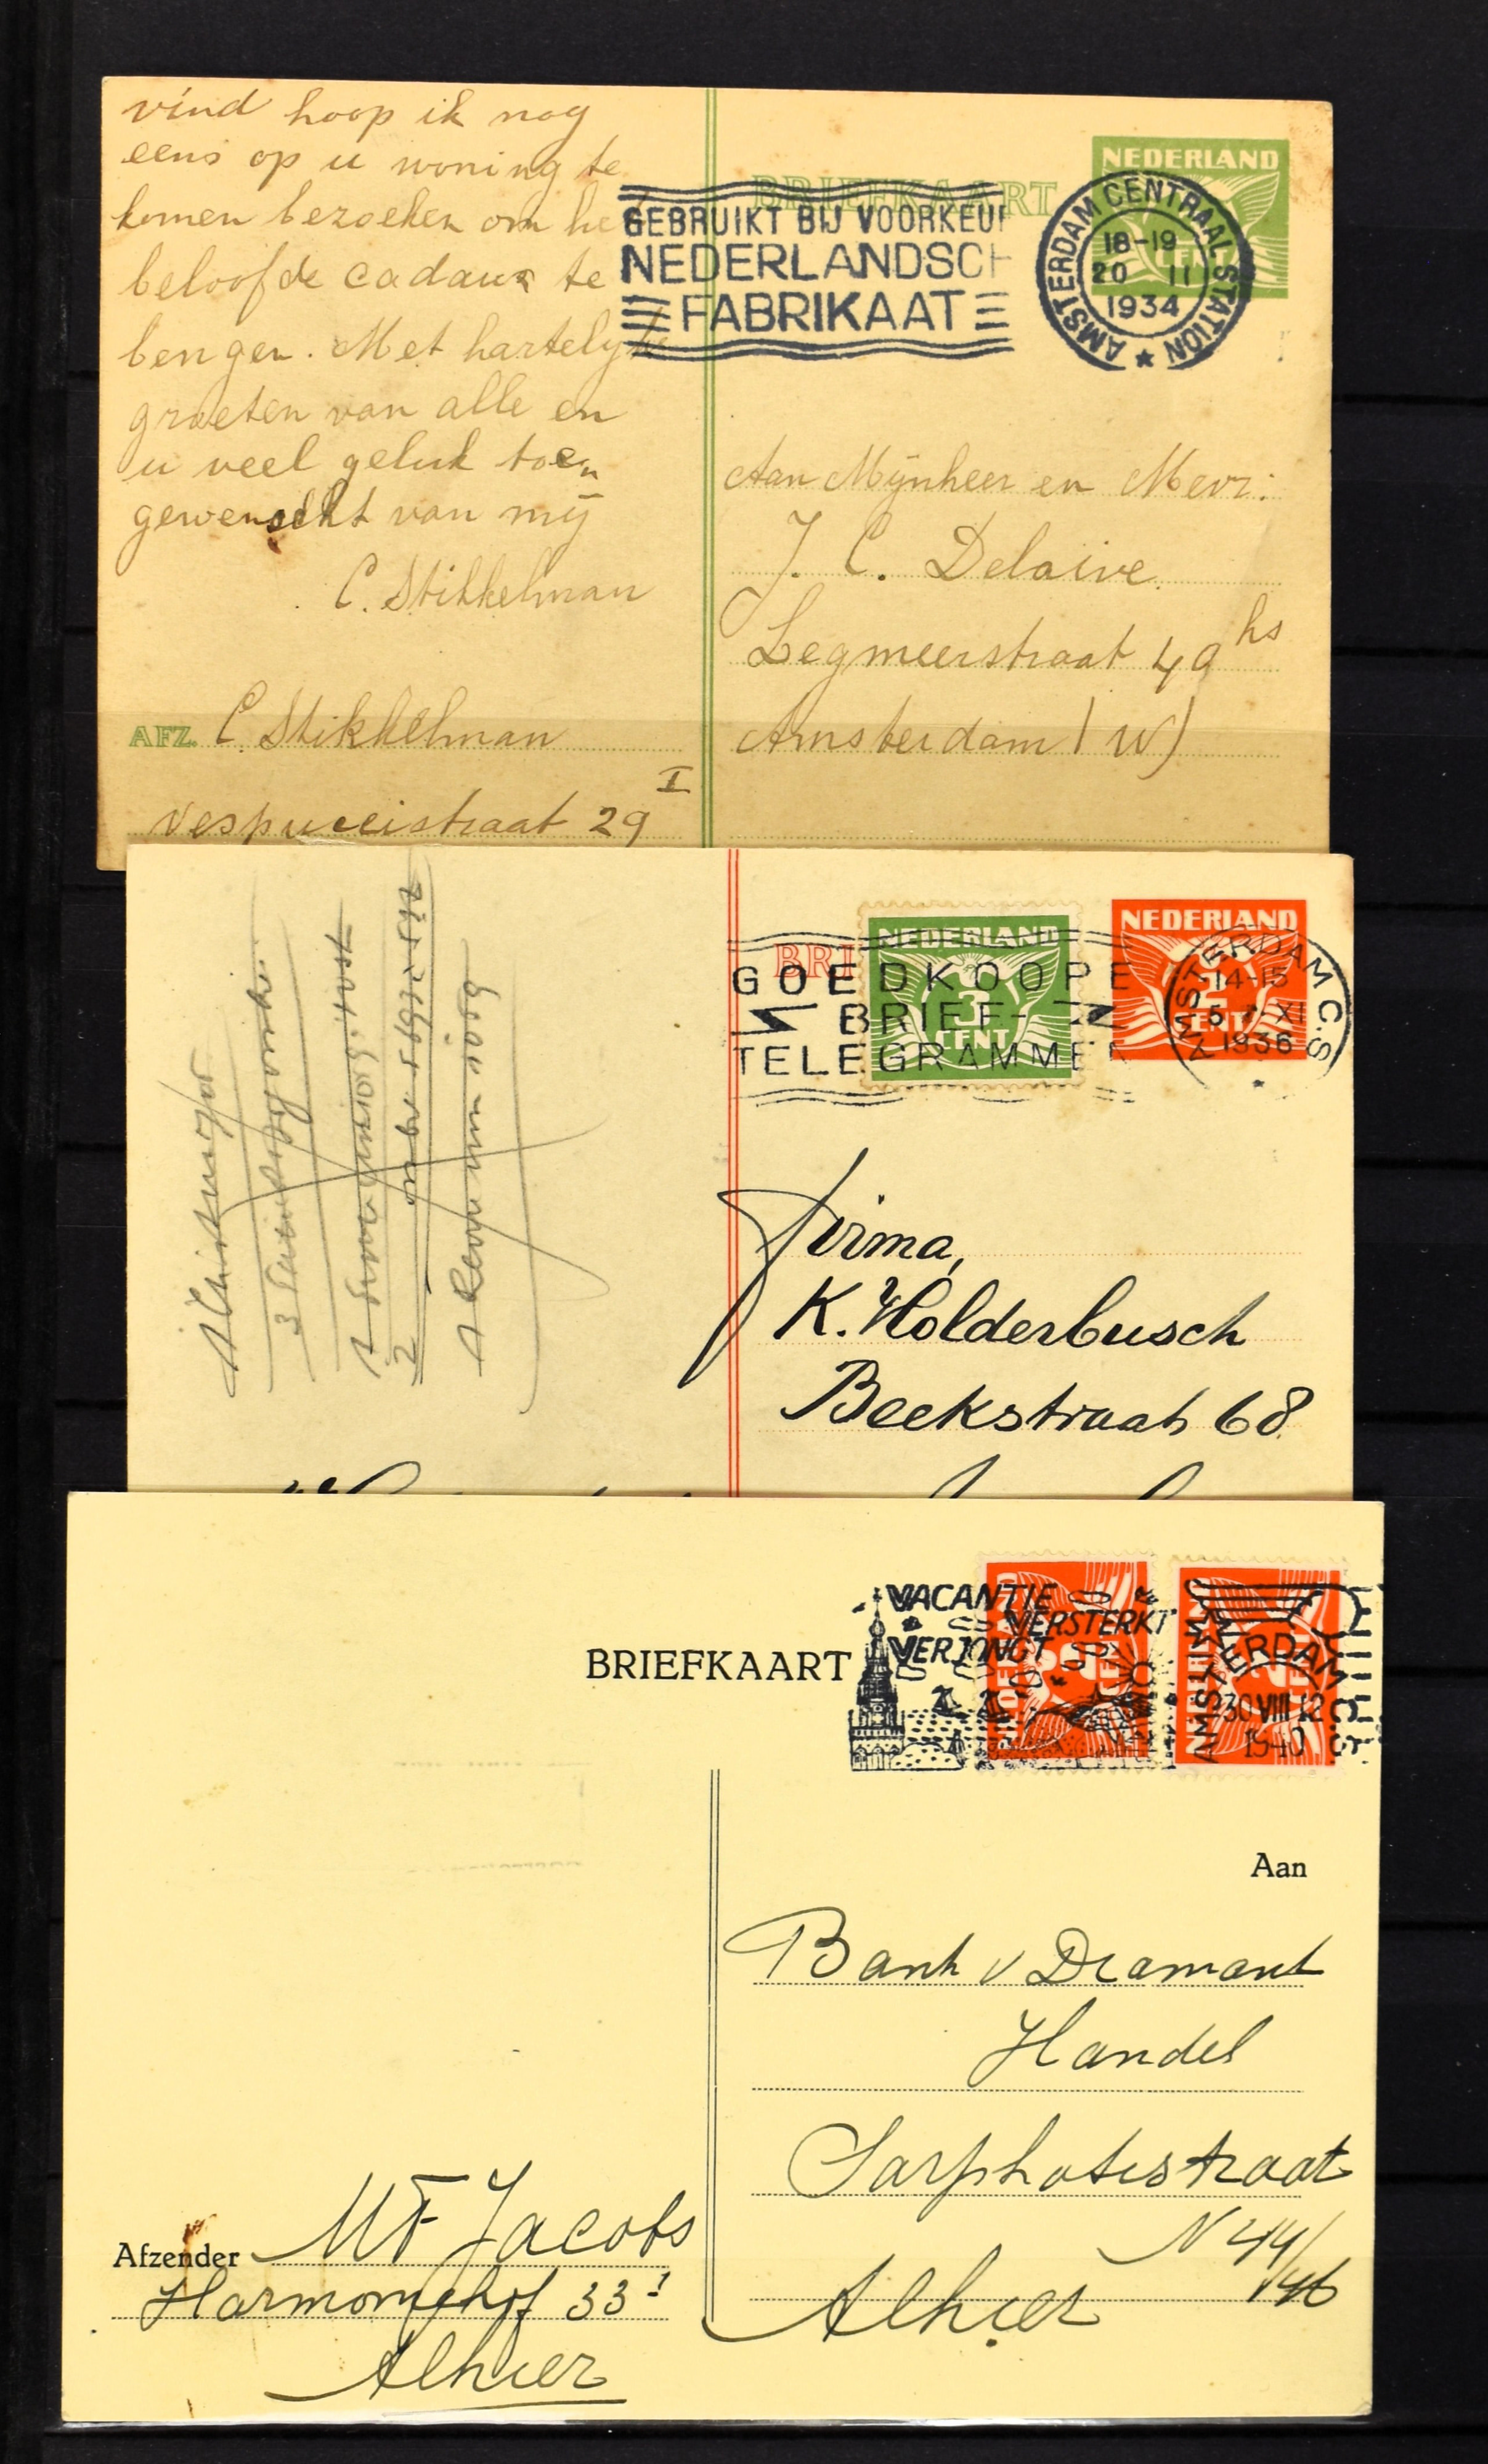 vind hoop ik nog
eens op u woning te
komen bezoeken om he
beloofde cadaux te
bengen. Met hartelyke
groeten van alle en
u veel geluk toen
gewenscht van mij
C. Stikkelman
AFZ. C. Stikkelman
Vespuccistraat 29 I
BRIEFKAART
GEBRUIKT BIJ VOORKEUR
NEDERLANDSCH
FABRIKAAT
NEDERLAND
CENT
AMSTERDAM CENTRAAL STATION
18-19
20 II
1934
Aan Mijnheer en Mevr:
J. C. Delaive
Legmeerstraat 49 hs
Amsterdam (W)
BRI
GOEDKOOPE
BRIEF-
TELEGRAMMEN
NEDERLAND
3
CENT
NEDERLAND
2
CENT
AMSTERDAM C.S.
14-15
5 XI
1936
Firma,
K. Holderbusch
Beekstraat 68
BRIEFKAART
VACANTIE
VERSTERKT
VERJONGT
AMSTERDAM C.S.
30 VIII 12
1940
Aan
Bank v Diamant
Handel
Sarphatistraat
N 44/
46
Alhier
Afzender MF Jacobs
Harmoniehof 33 I
Alhier